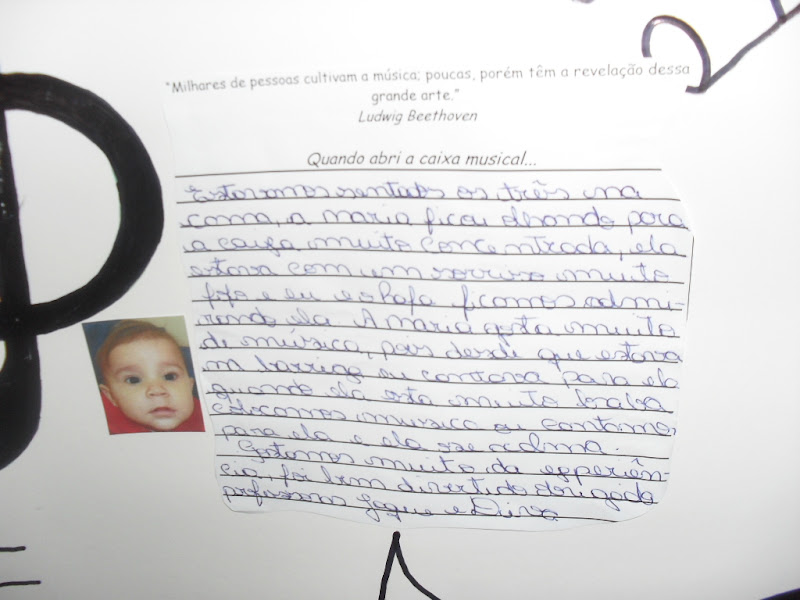 "Milhares de pessoas cultivam a música; poucas, porém têm a revelação dessa
grande arte."
Ludwig Beethoven
Quando abri a caixa musical...
Estavamos sentados os três na
cama, a maria ficou olhando para
a caixa muito concentrada, ela
estava com um sorriso muito
fofo e eu e o Rafa ficamos admi-
rando ela. A maria gosta muito
de música, pois desde que estava
na barriga eu cantava para ela
quando ela está muito braba
colocamos musica ou cantamos
para ela e ela se acalma.
Gostamos muito da experiên-
cia, foi bem divertido obrigada
professoras e